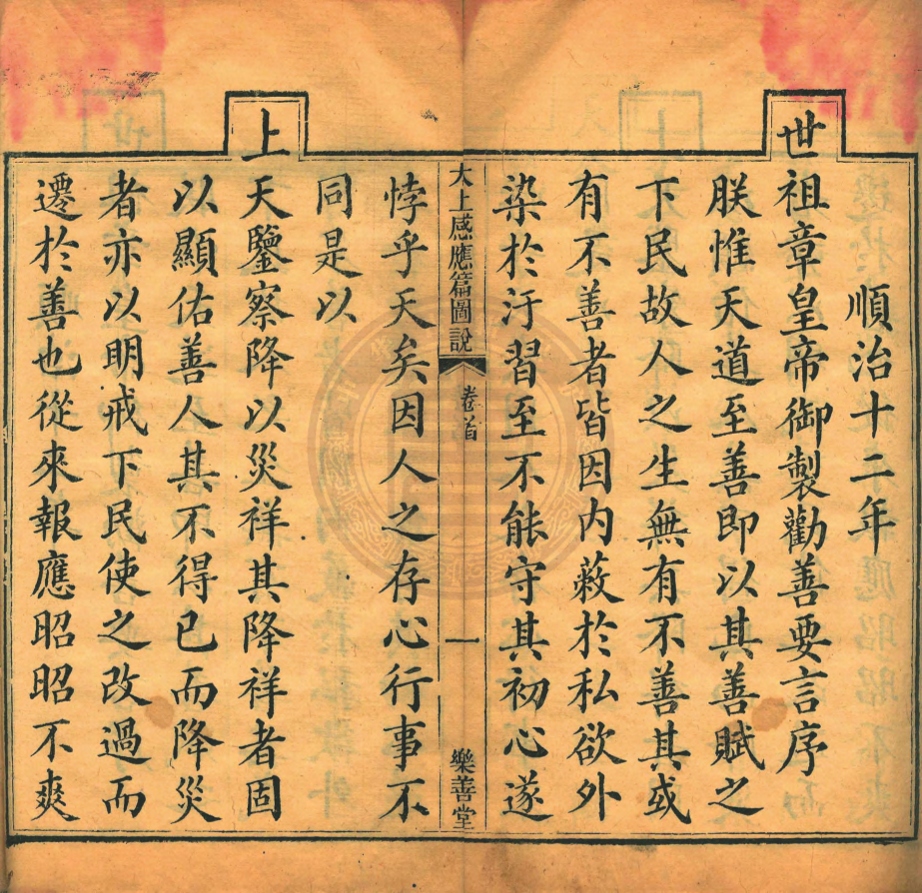 順治十二年
世祖章皇帝御製勸善要言序
朕惟天道至善即以其善賦之
下民故人之生無有不善其或
有不善者皆因内蔽於私欲外
染於汙習至不能守其初心遂
大上感應篇圖說 卷首 一 樂善堂
悖乎天矣因人之存心行事不
同是以
上天鑒察降以災祥其降祥者固
以顯佑善人其不得已而降災
者亦以明戒下民使之改過而
遷於善也從來報應昭昭不爽